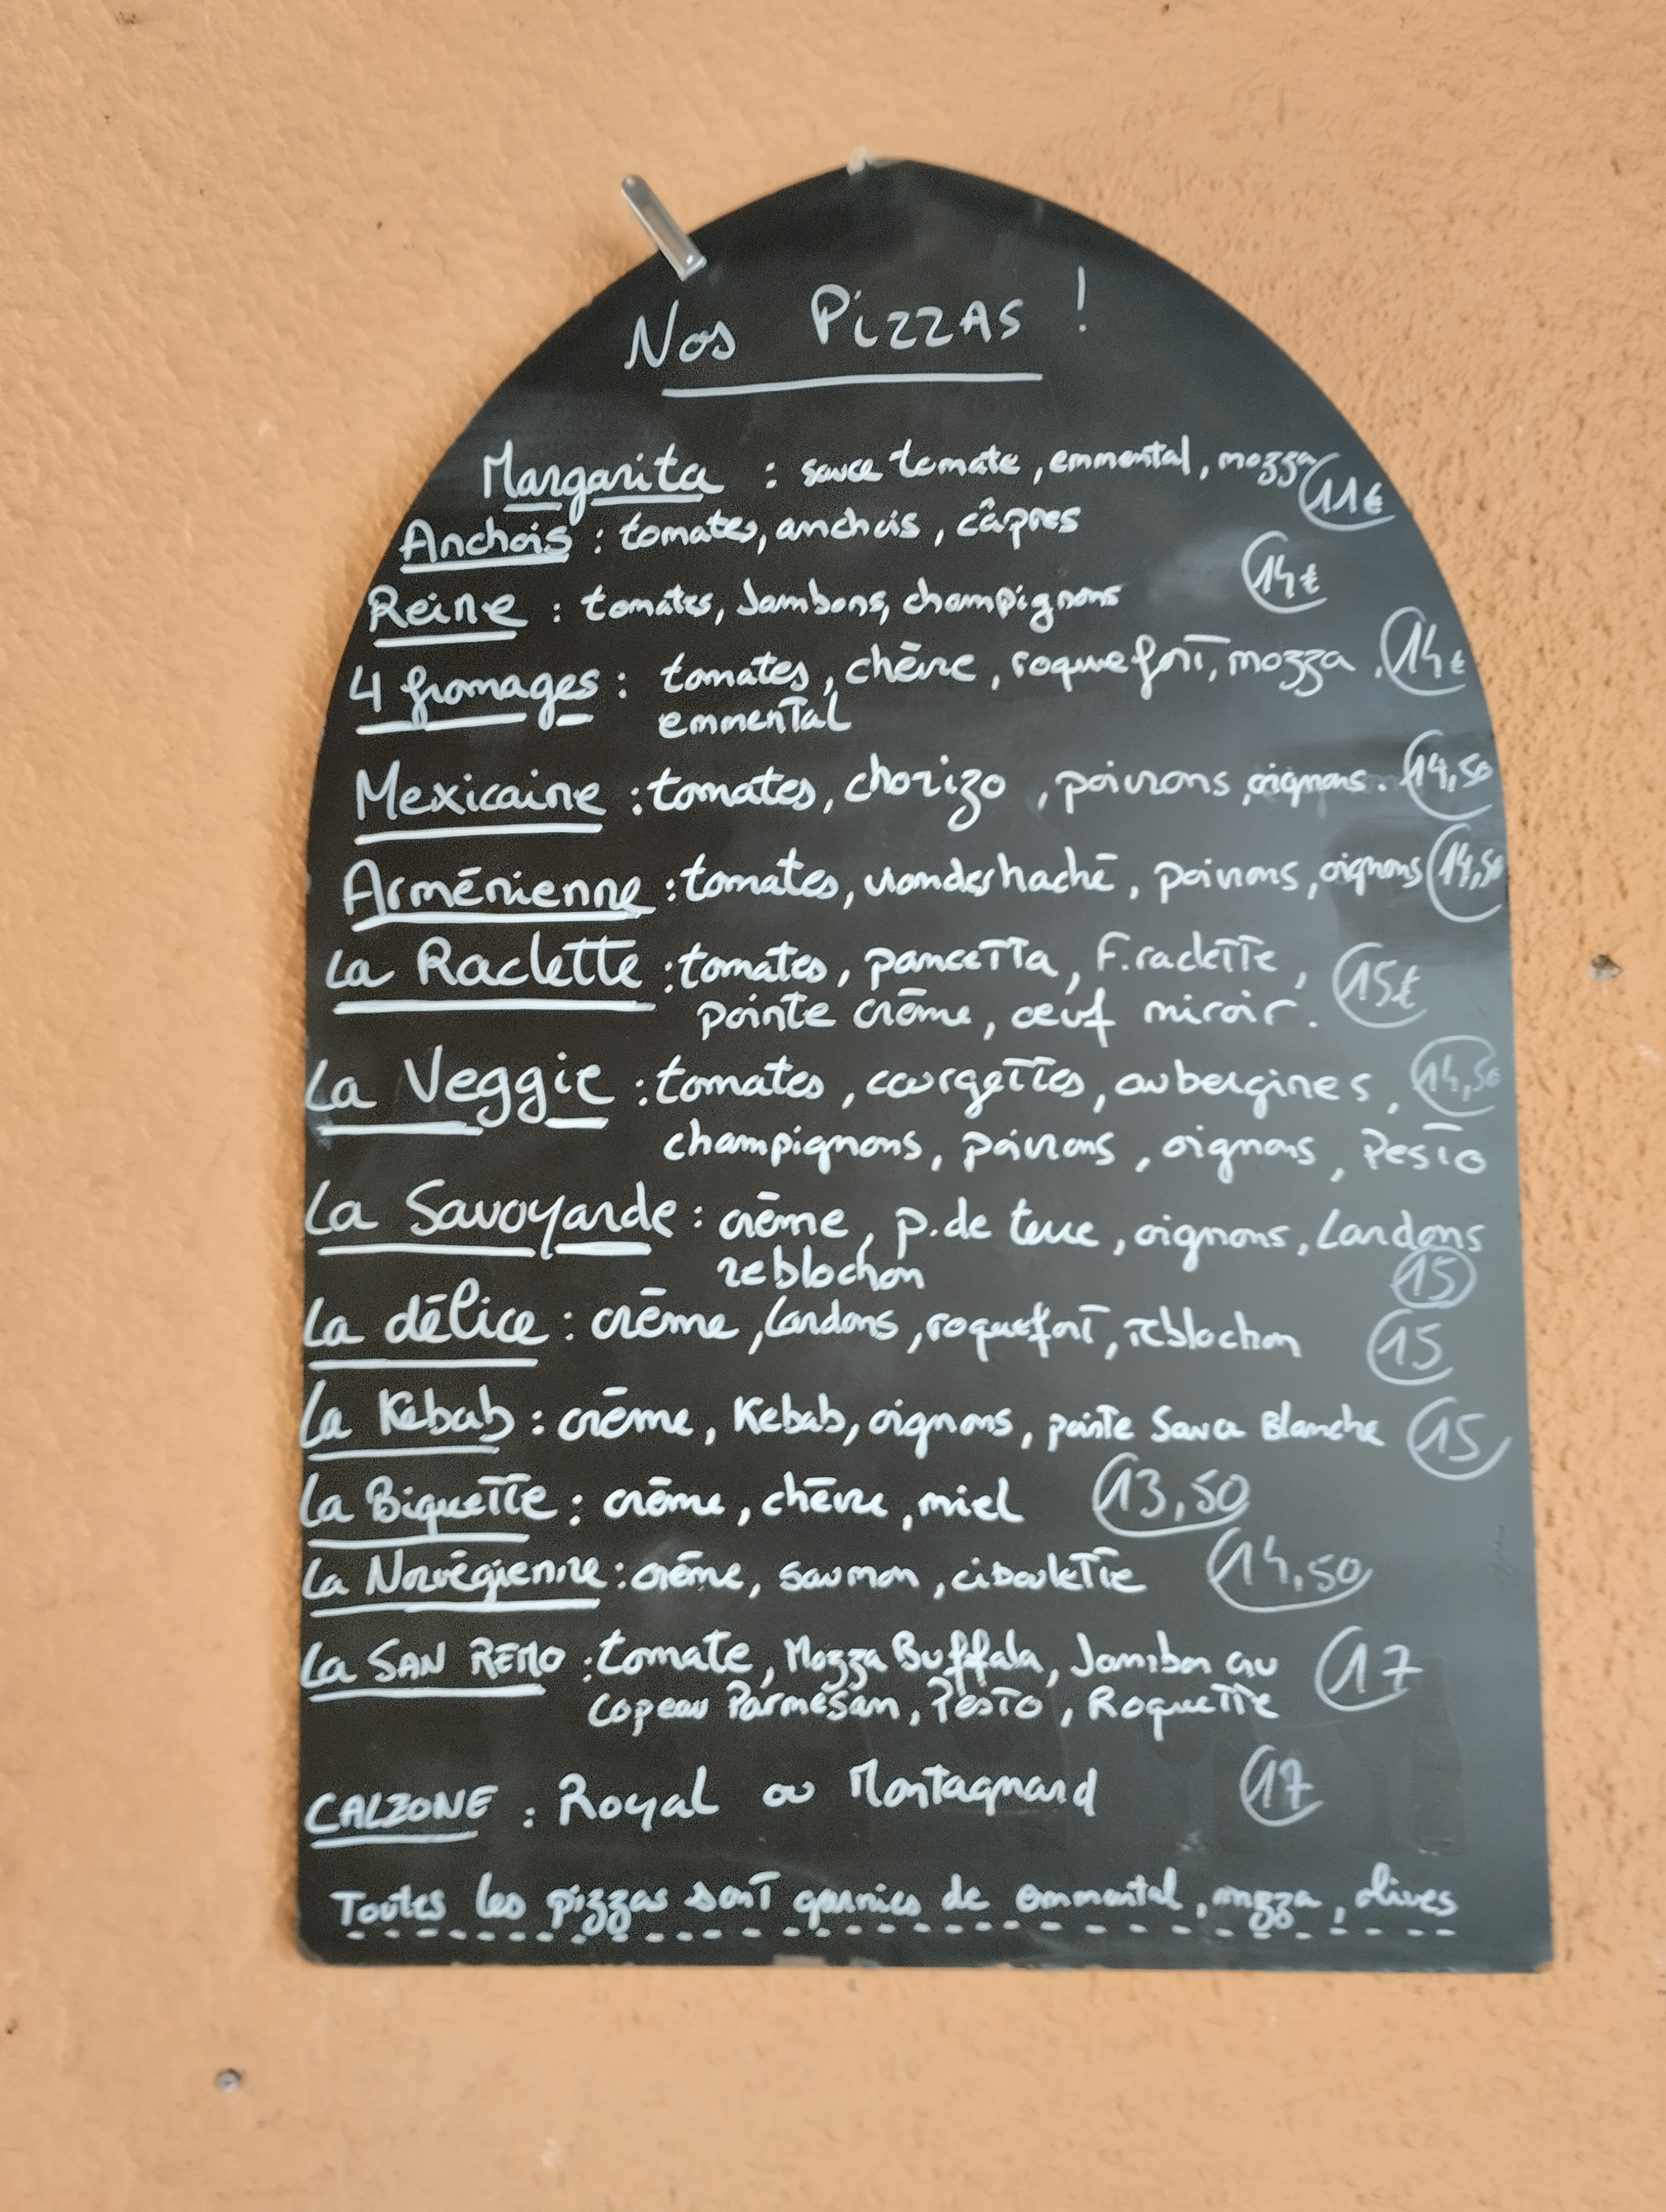 Nos Pizzas !
Margarita : sauce tomate, emmental, mozza 11€
Anchois : tomates, anchois, câpres
Reine : tomates, Jambons, champignons 14€
4 fromages : tomates, chèvre, roquefort, mozza, 14€
emmental
Mexicaine : tomates, chorizo, poivrons, oignons. 14,50
Arménienne : tomates, viandes haché, poivrons, oignons 14,50
La Raclette : tomates, pancetta, F.raclette, 15€
pointe crème, œuf miroir.
La Veggie : tomates, courgettes, aubergines, 14,50
champignons, poivrons, oignons, Pesto
La Savoyarde : crème, p.de terre, oignons, Lardons
reblochon 15
La délice : crème, Lardons, roquefort, reblochon 15
La Kebab : crème, Kebab, oignons, pointe Sauce Blanche 15
La Biquette : crème, chèvre, miel 13,50
La Norvégienne : crème, saumon, ciboulette 14,50
La SAN REMO : tomate, Mozza Buffala, Jambon cru 17
Copeau Parmesan, Pesto, Roquette
CALZONE : Royal ou Montagnard 17
Toutes les pizzas sont garnies de emmental, mozza, olives